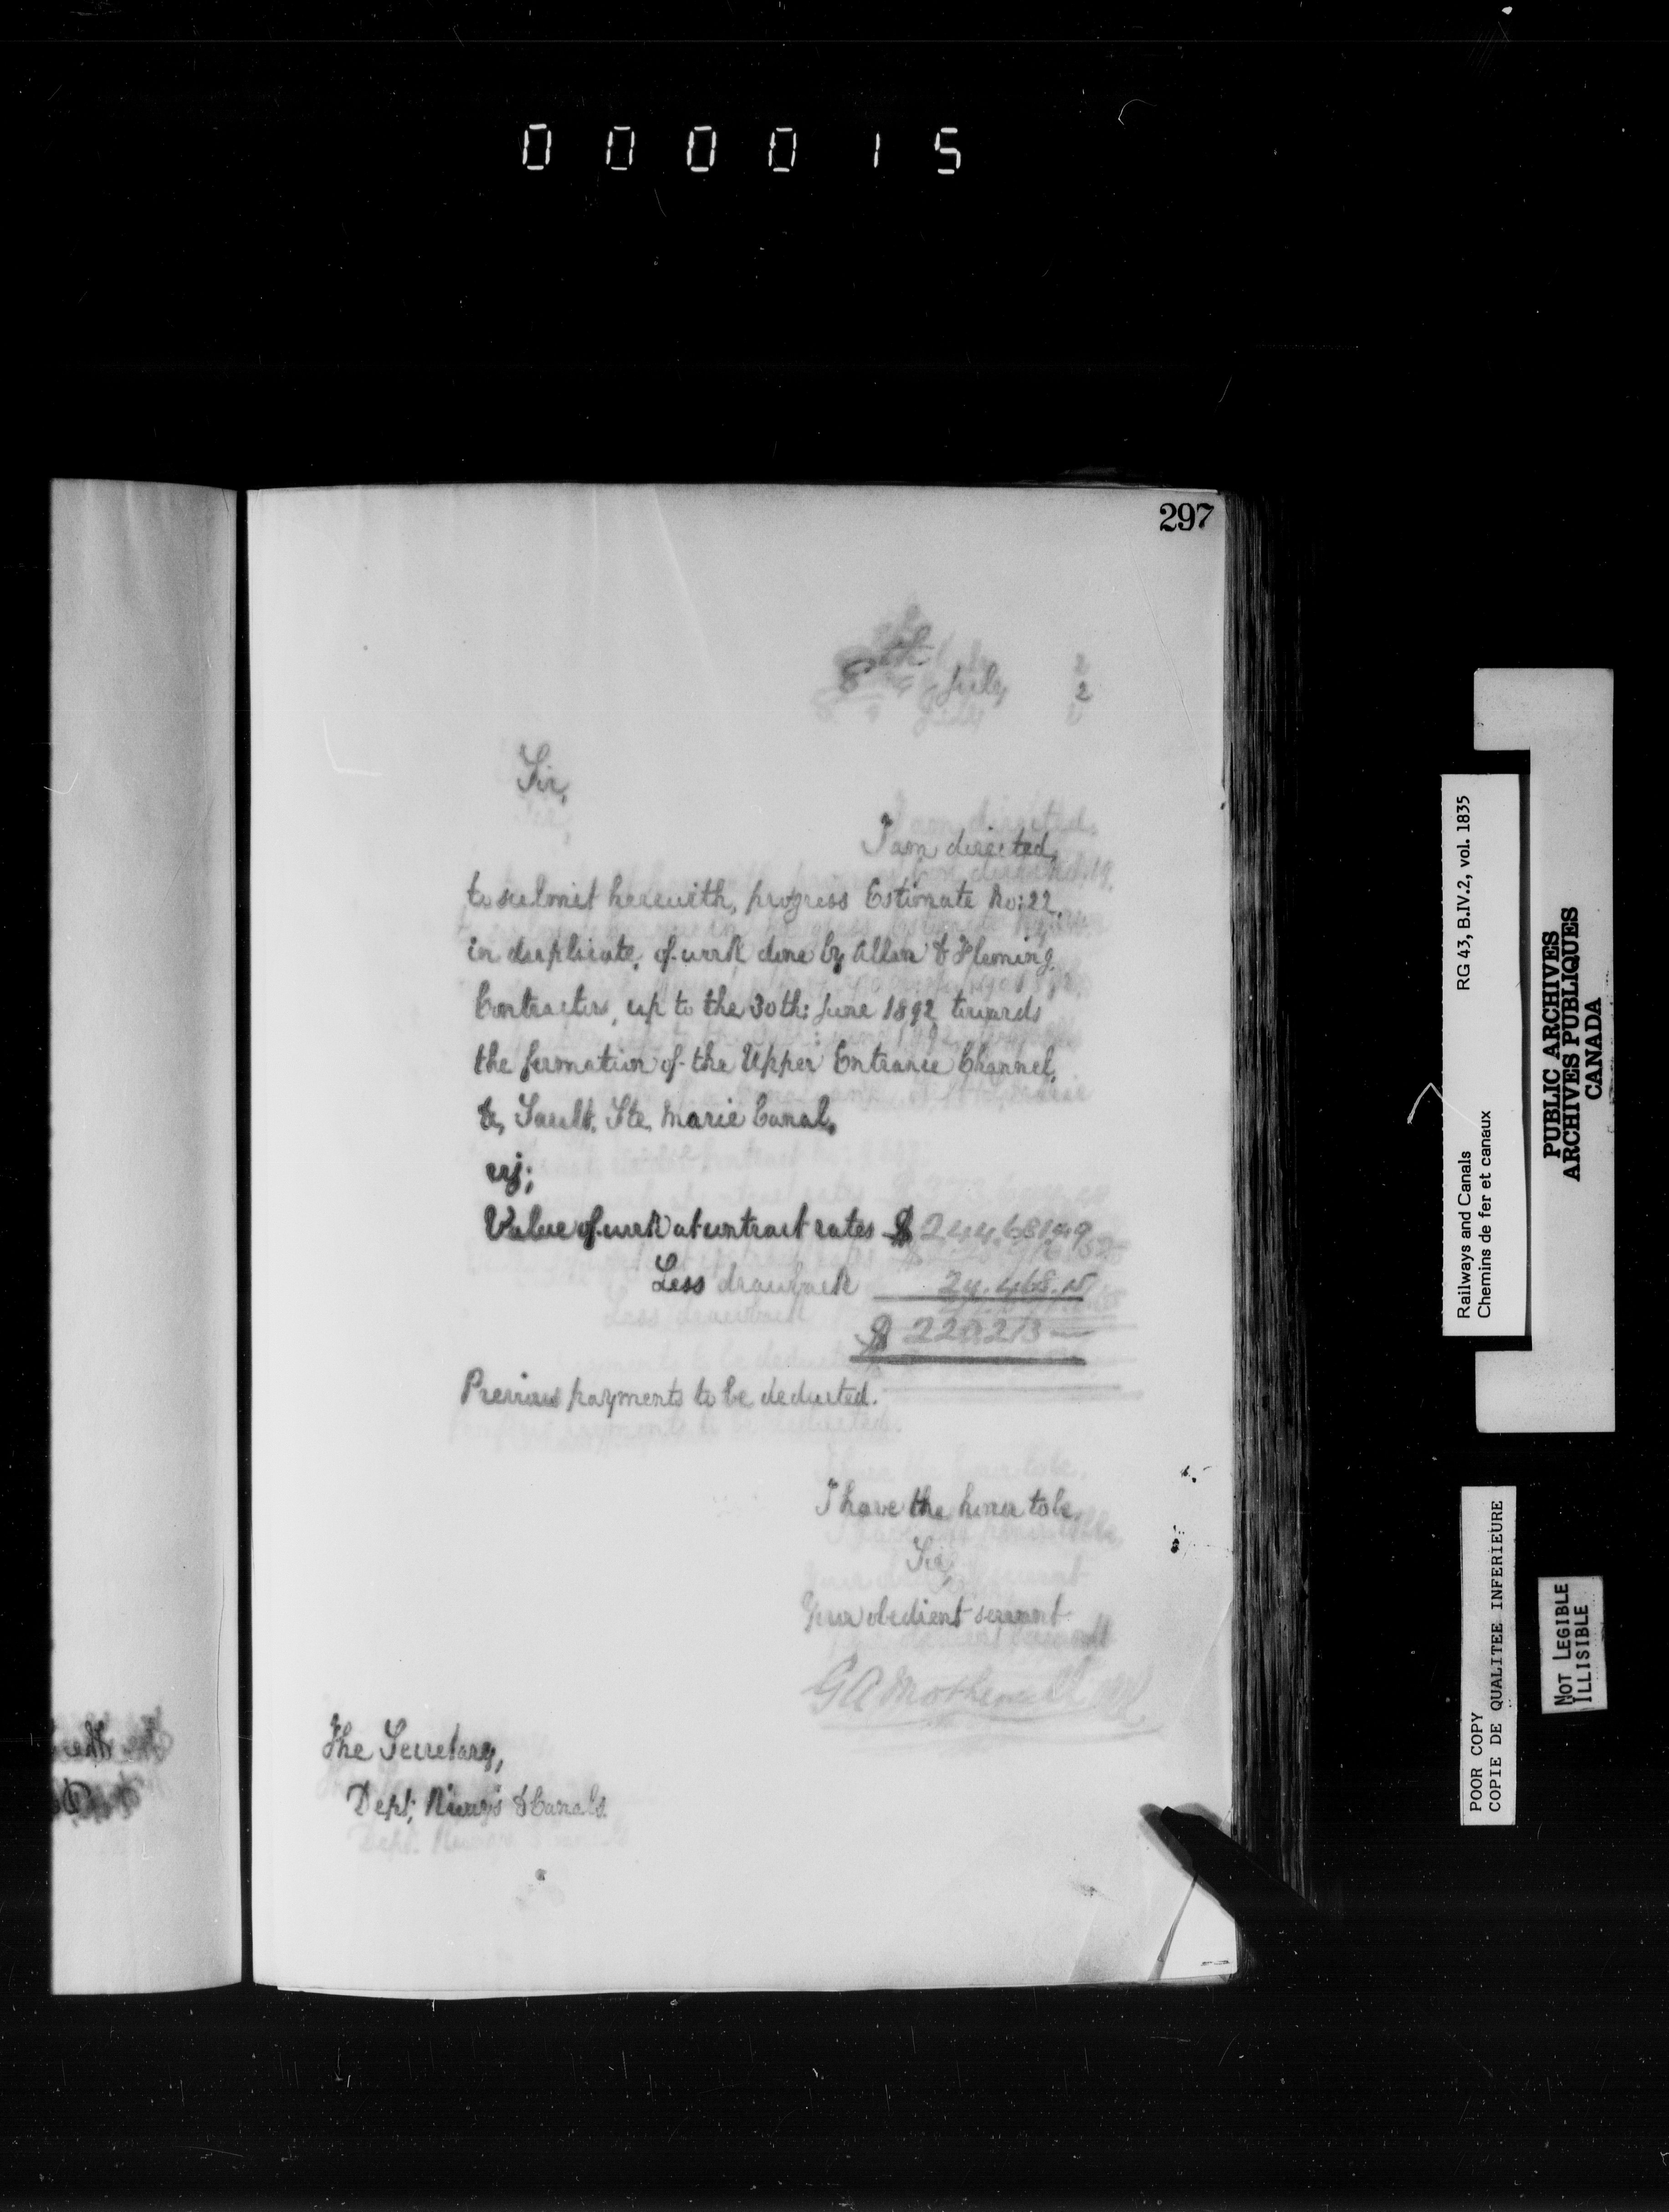 000015
297
8th July 2
Sir,
I am directed,
to submit herewith, progress Estimate No: 22,
in duplicate, of work done by Allan & Fleming,
Contractors, up to the 30th: June 1892, towards
the formation of the Upper Entrance Channel,
&c, Sault. Ste. Marie Canal,
viz;
Value of work at contract rates $ 244.681
Less drawback 24.468.
$ 220.213 —
Previous payments to be deducted.
I have the honor to be,
Sir,
Your obedient servant
The Secretary,
Dept; Riways & Canals.
Railways and Canals RG 43, B.IV.2, vol. 1835
Chemins de fer et canaux
PUBLIC ARCHIVES
ARCHIVES PUBLIQUES
CANADA
POOR COPY
COPIE DE QUALITEE INFERIEURE
NOT LEGIBLE
ILLISIBLE